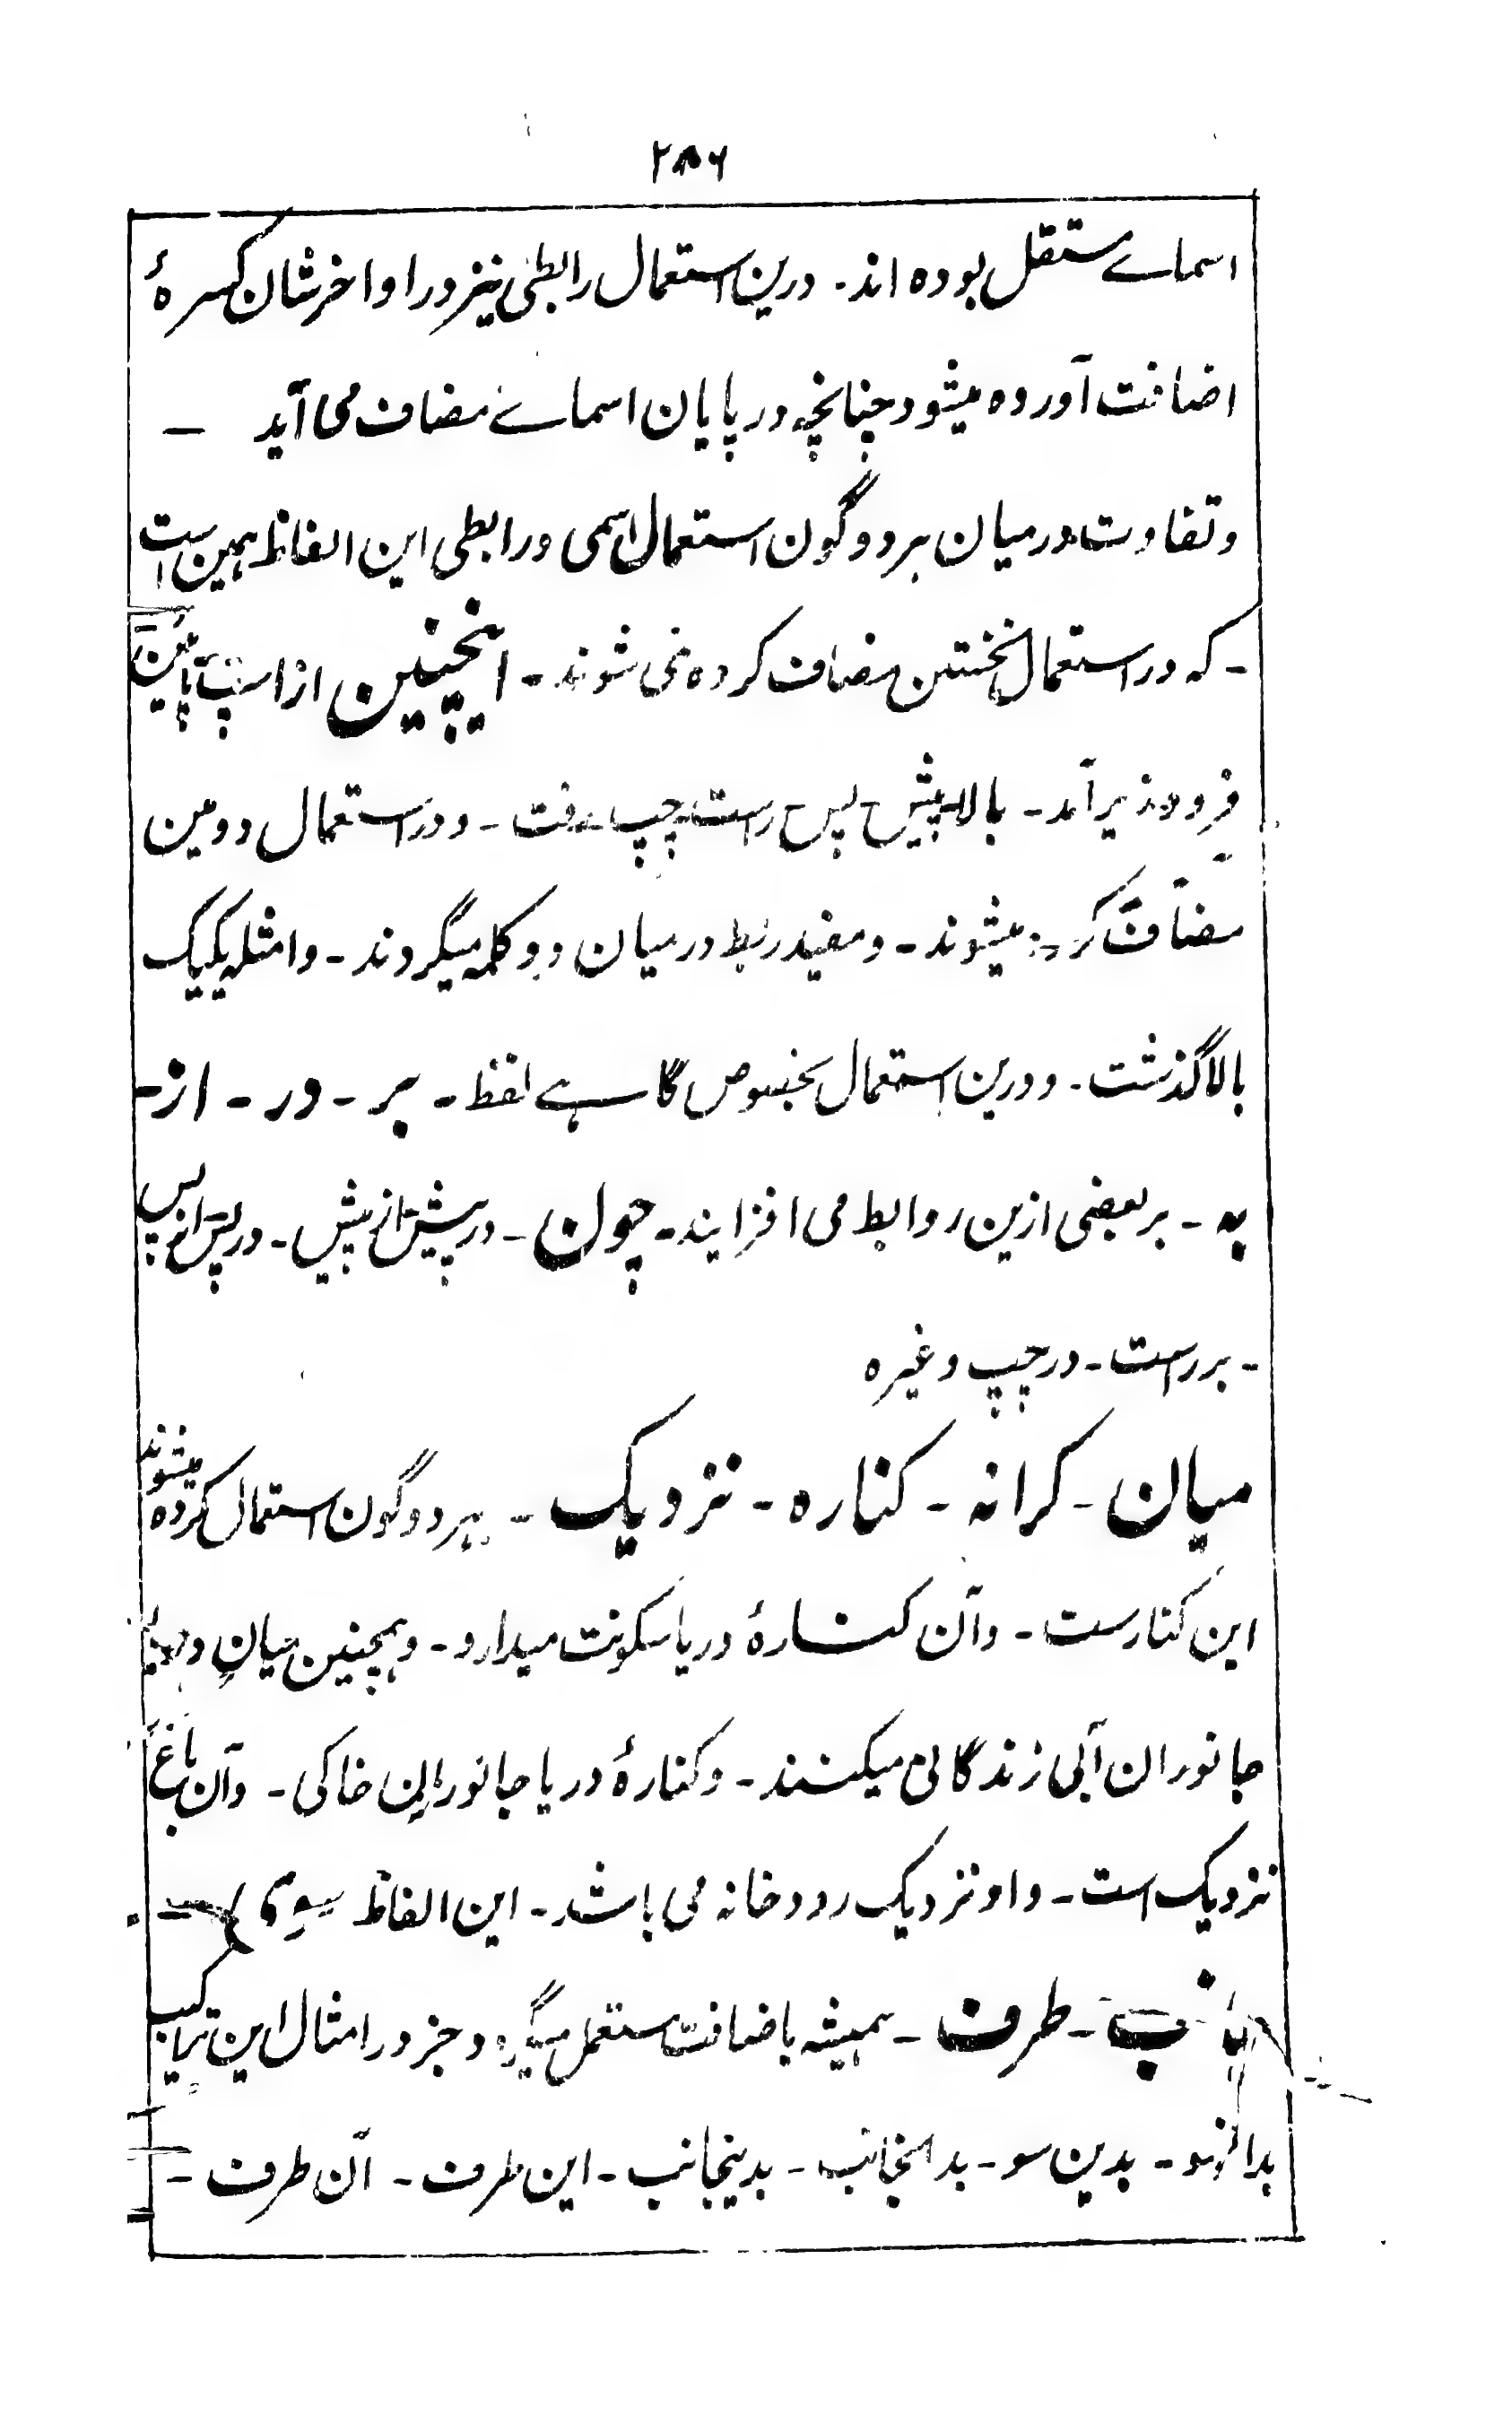 ۲۸۶
اسماے مستقل بوده اند۔ درین استعمال رابطی نیز در اواخر شان کسرۀ
اضافت آورده میشود چنانچه در پایان اسماے مضاف می آید ۔
و تفاوت درمیان هر دو گون استعمال اسمی و رابطی این الفاظ همین است
۔ که در استعمال نخستین مضاف کرده نمی شوند ۔ اینچنین از اسپ پائین
فرود زیر آمد۔ بالا پیش پس راست چپ رفت ۔ و در استعمال دومین
مضاف کرده میشوند ۔ و مفید ربط درمیان دو کلمه میگردند ۔ و امثله یکیک
بالا گذشت ۔ و درین استعمال بخصوص گاہے لفظ ۔ بر ۔ در ۔ از ۔
به ۔ بر بعضی ازین روابط می افزایند ۔ چون ۔ در پیش از پیش ۔ در پس از پس
۔ بر راست ۔ در چپ وغیره
میان ۔ کرانه ۔ کناره ۔ نزدیک ۔ بهر دو گون استعمال کرده میشوند
این کنارست ۔ و آن کنارۀ دریا سکونت میدارد ۔ و همچنین میان دریا
جانوران آبی زندگانی میکنند ۔ و کنارۀ دریا جانوران خاکی ۔ و آن باغ
نزدیک است ۔ و او نزدیک رودخانه می باشد ۔ این الفاظ سوی ۔
جانب ۔ طرف ۔ همیشه باضافت مستعمل میگردد جز در امثال این تراکیب
بدانسو ۔ بدین سو ۔ بدانجانب ۔ بدینجانب ۔ این طرف ۔ آن طرف ۔